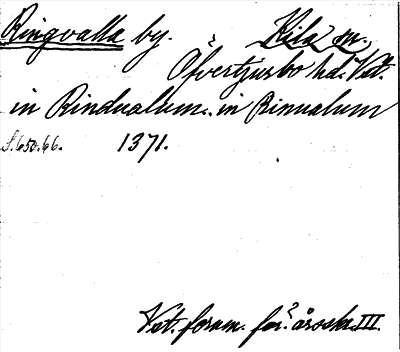 Ringvalla by. Kila sn.
Öfvertjurbo hd. Vst.
in Rindualum. in Rinualum
1371.
Vst. fornm. för. årsskr. III.